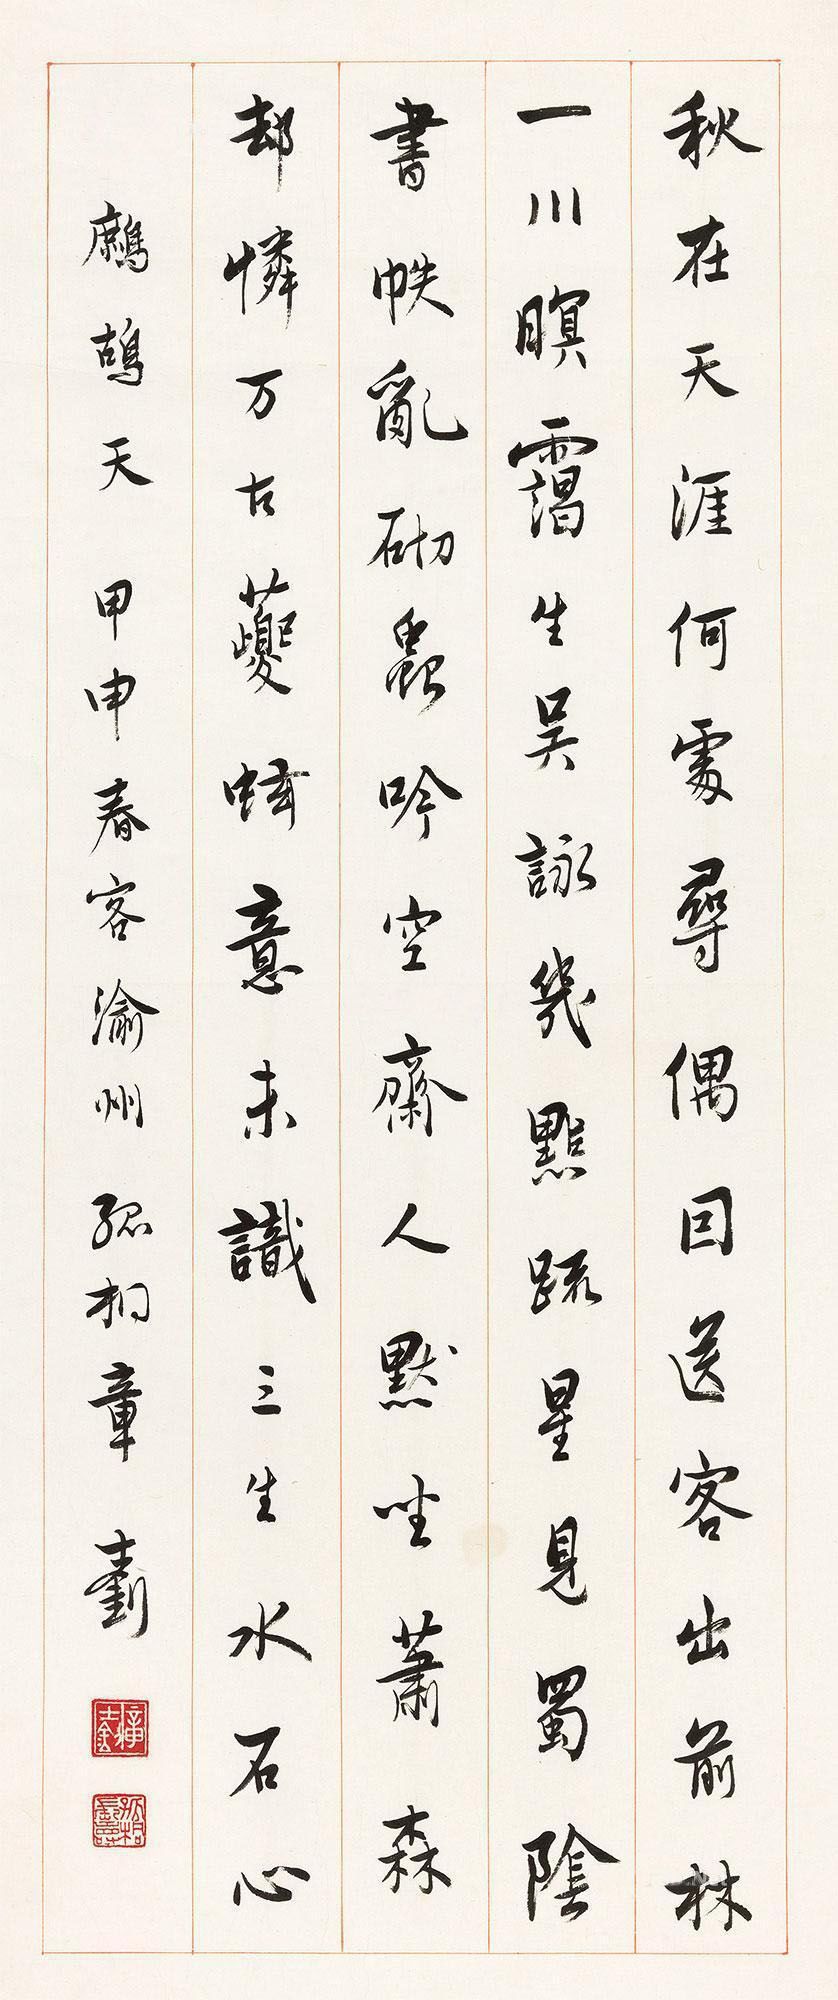 秋在天涯何處尋偶因送客出前林
一川暝靄生吳詠幾點疏星見蜀陰
書帙亂砌蟲吟空齋人默坐蕭森
却憐万古夔蚿意未識三生水石心
鷓鴣天 甲申春客渝州 孤桐章士釗